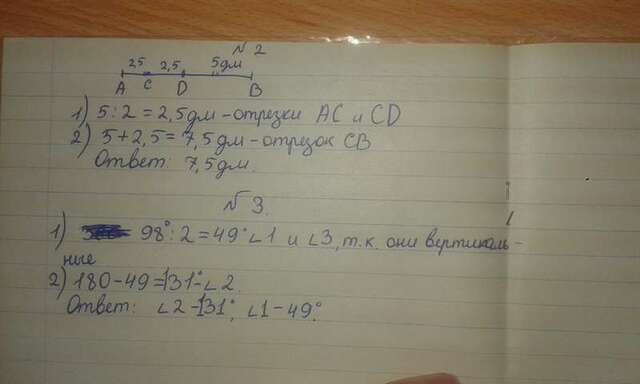 № 2
2,5 2,5 5дм
A C D B
1) 5:2=2,5дм-отрезки AC и CD
2) 5+2,5=7,5дм-отрезок CB
Ответ: 7,5дм.
№ 3.
1) 98°:2=49°∠1 и ∠3, т.к. они вертикаль-
ные
2) 180-49=131°∠2.
Ответ: ∠2-131°, ∠1-49°.